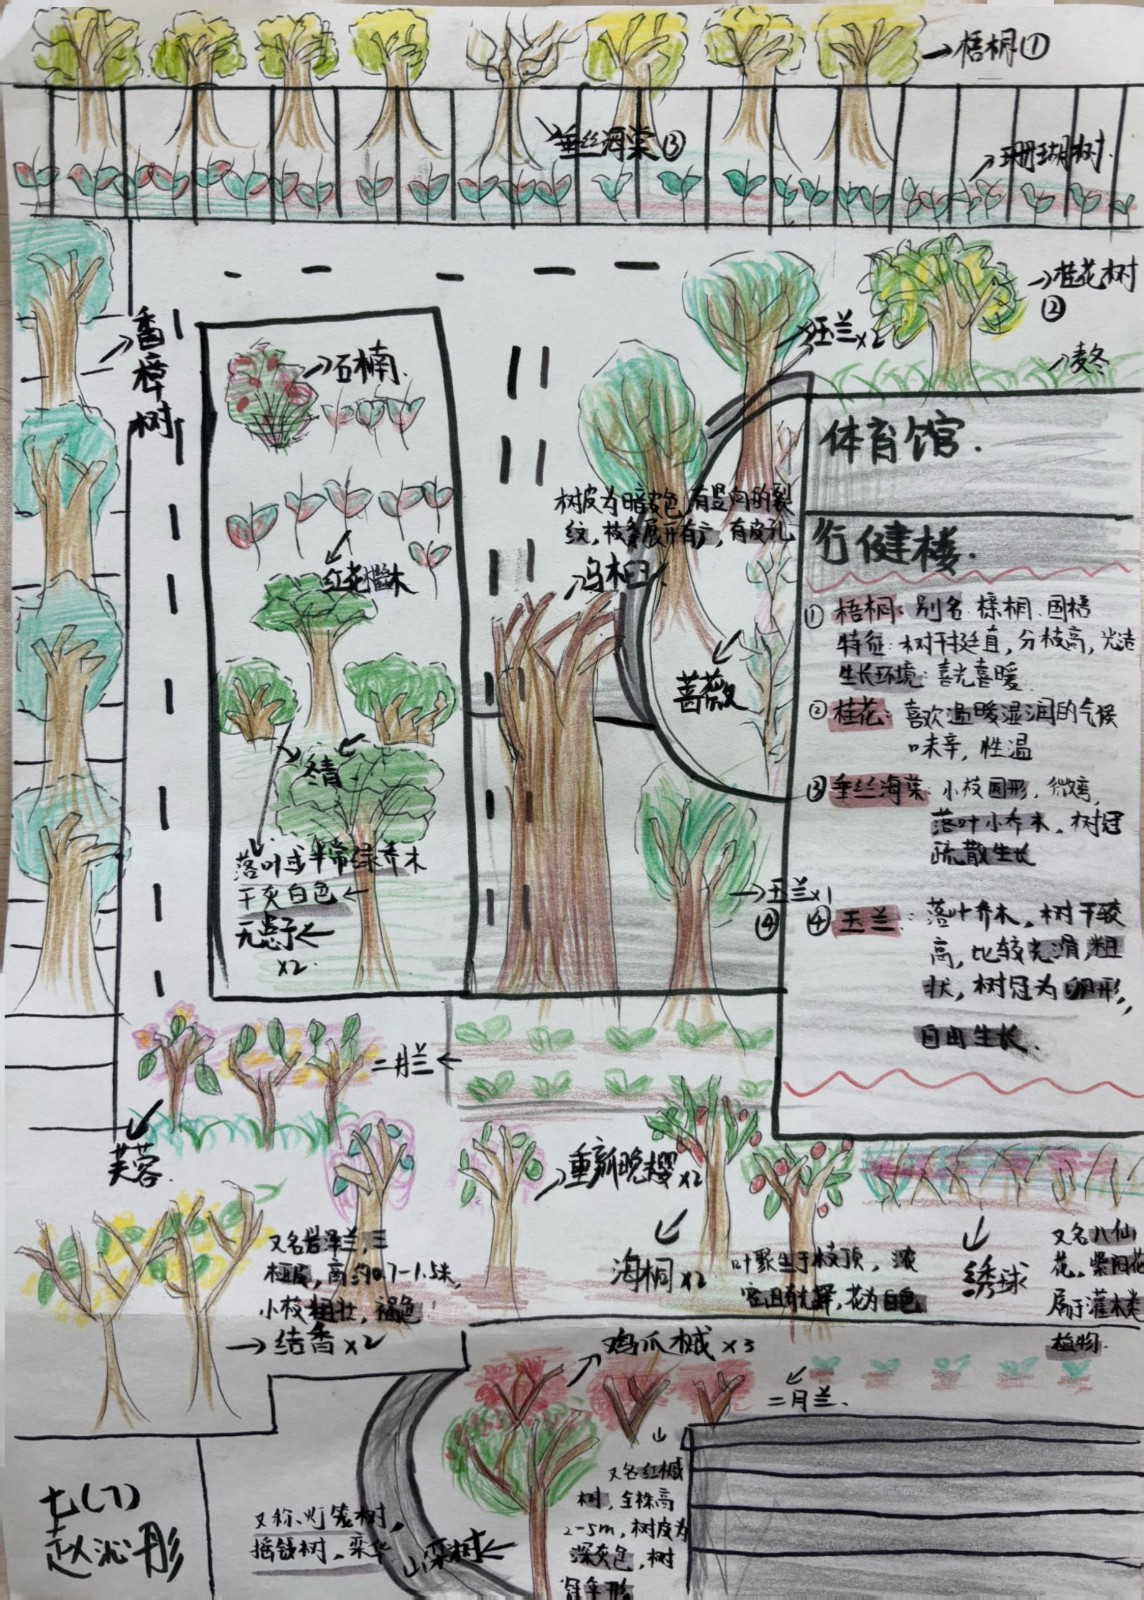 梧桐①
垂丝海棠③
珊瑚树.
桂花树
②
玉兰x2
麦冬
香樟树
石楠.
体育馆.
树皮为暗灰色,有竖向的裂
纹,枝条展开有,有皮孔
行健楼.
红花檵木
乌桕
①梧桐:别名 榇桐.国梧
特征:树干挺直,分枝高,光洁
生长环境:喜光喜暖
蔷薇
②桂花:喜欢温暖湿润的气候
味辛,性温
冬青
③垂丝海棠:小枝圆形,微弯,
落叶小乔木,树冠
疏散生长
落叶或半常绿乔木
干灰白色
玉兰x1
④
无患子
x2.
④玉兰:落叶乔木,树干较
高,比较光滑,粗
状,树冠为卵形,
自由生长.
二月兰
芙蓉.
重瓣晚樱x2
海桐x2
叶聚生于枝顶,浓
密且有光泽,花为白色
绣球
又名八仙
花,紫阳花
属于灌木类
植物.
又名岩泽兰,三
桠皮,高约0.7-1.5米,
小枝粗壮,褐色
结香x2
鸡爪槭x3
二月兰.
七(7)
赵沁彤
又称、灯笼树,
摇钱树、栾华
山栾树
又名红槭
树,全株高
2-5m,树皮为
深灰色,树
冠伞形